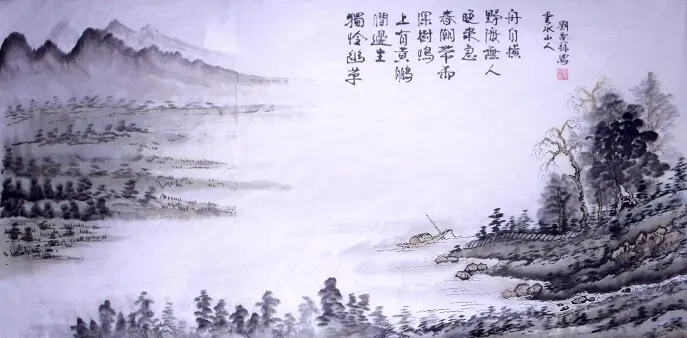 獨怜幽草
澗邊生
上有黃鸝
深樹鳴
春潮帶雨
晚來急
野渡無人
舟自橫
雲水山人
劉祥寫